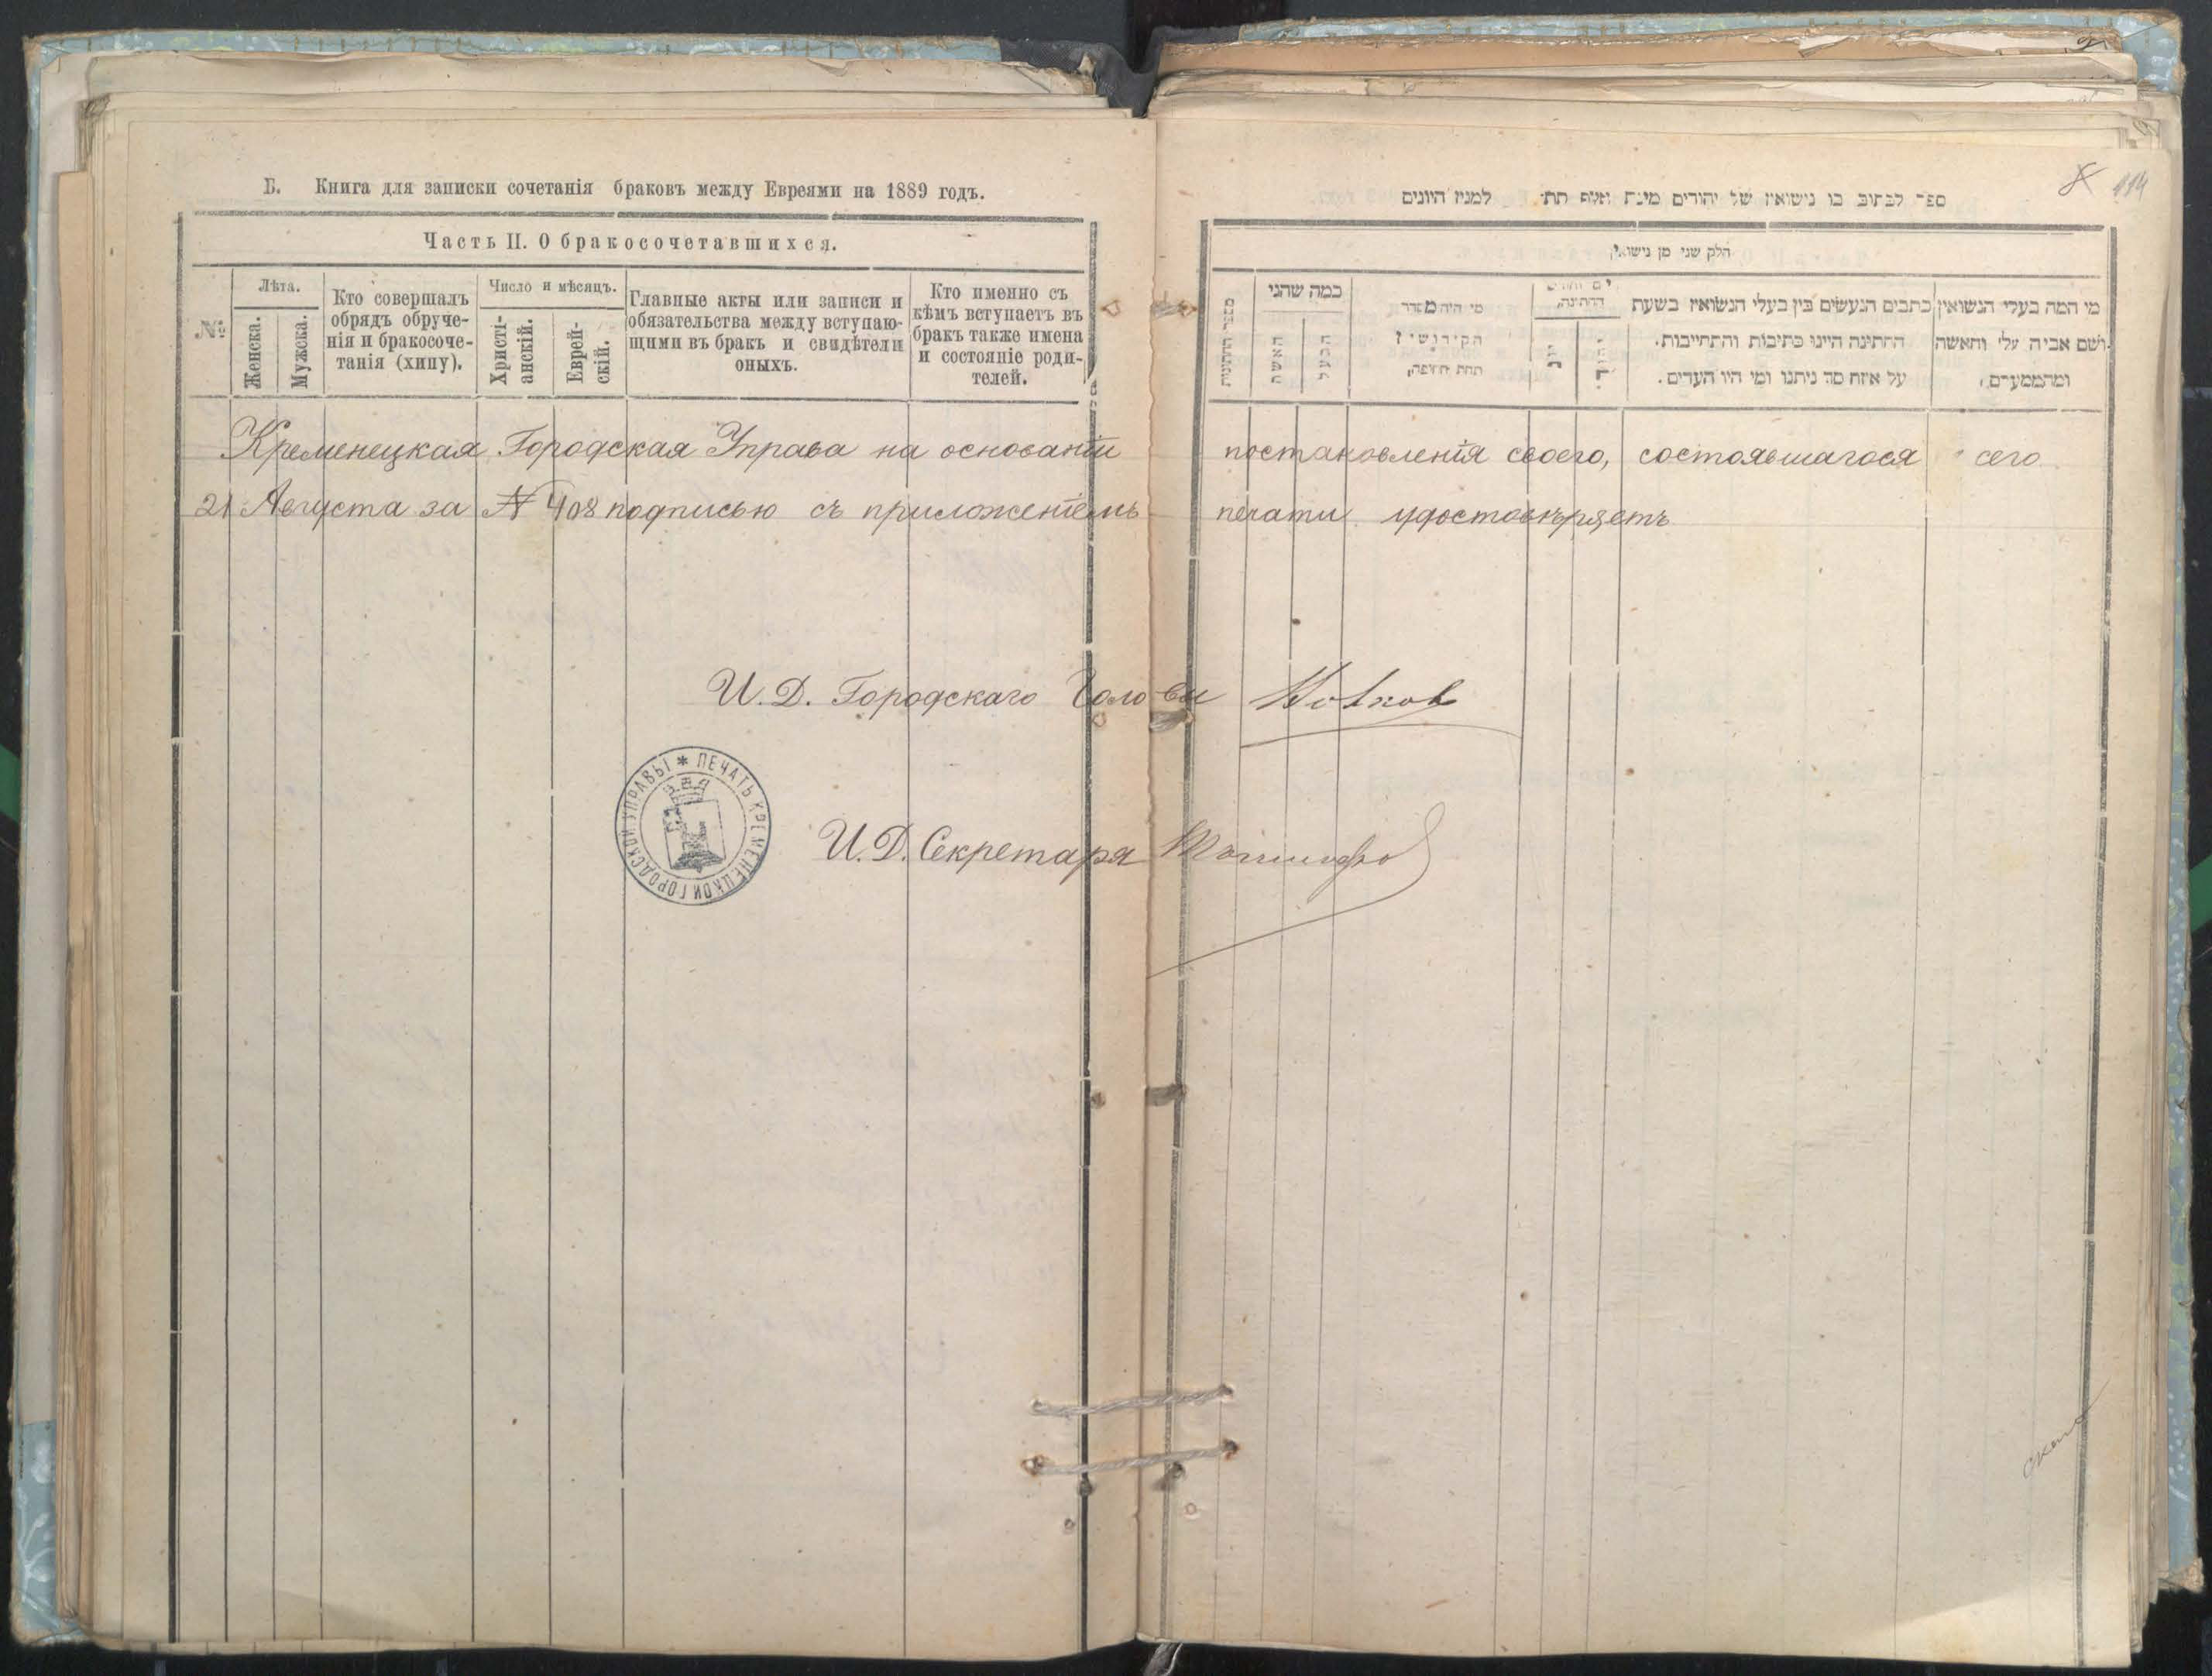 Б. Книга для записки сочетанія браковъ между Евреями на 1889 годъ.
Часть II. О бракосочетавшихся.
№
Лѣта.
Женска.
Мужеска.
Кто совершалъ
обрядъ обруче-
нія и бракосоче-
танія (хипу).
Число и мѣсяцъ.
Христі-
анскій.
Еврей-
скій.
Главные акты или записи и
обязательства между вступаю-
щими въ бракъ и свидѣтели
оныхъ.
Кто именно съ
кѣмъ вступаетъ въ
бракъ также имена
и состояніе роди-
телей.
ספר לכתוב בו נישואין של יהודים משנת אלף תת למנין היונים
114
חלק שני מן נישואין
כמה שהני
האשה
הבעל
מי היה מסדר
הקידושין
תחת חופה,
החתונה,
יוני
יהודי
כתבים הנעשים בין בעלי הנשואין בשעת
החתונה היינו כתיבות והתחייבות.
על איזה סך ניתנו ומי היו העדים.
מי המה בעלי הנשואין
ושם אביה עלי והאשה
ומהמעמדם,
Кременецкая Городская Управа на основаніи постановленія своего, состоявшагося сего
21 Августа за № 408 подписью съ приложеніемъ печати удостовѣряетъ
И. Д. Городскаго Головы Волков
ПЕЧАТЬ КРЕМЕНЕЦКОЙ ГОРОДСКОЙ УПРАВЫ
И. Д. Секретаря